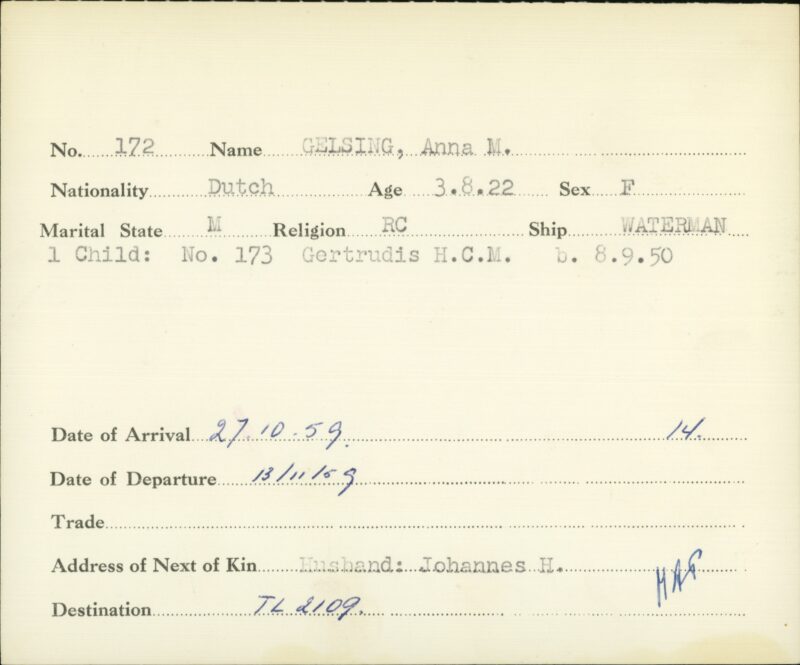 No. 172 Name GELSING, Anna M.
Nationality Dutch Age 3.8.22 Sex F
Marital State M Religion RC Ship WATERMAN
1 Child: No. 173 Gertrudis H.C.M. b. 8.9.50
Date of Arrival 27.10.59. 14.
Date of Departure 13/11/59
Trade
Address of Next of Kin Husband: Johannes H.
Destination TL 2109.